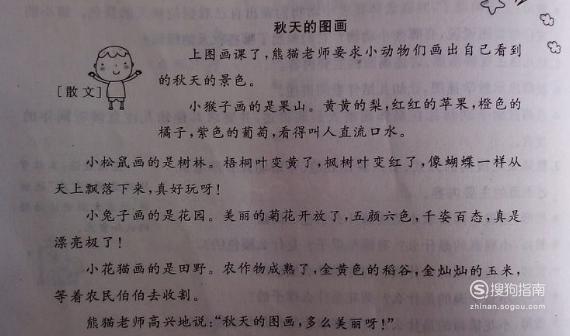 秋天的图画
上图画课了,熊猫老师要求小动物们画出自己看到
的秋天的景色。
[散文]
小猴子画的是果山。黄黄的梨,红红的苹果,橙色的
橘子,紫色的葡萄,看得叫人直流口水。
小松鼠画的是树林。梧桐叶变黄了,枫树叶变红了,像蝴蝶一样从
天上飘落下来,真好玩呀!
小兔子画的是花园。美丽的菊花开放了,五颜六色,千姿百态,真是
漂亮极了!
小花猫画的是田野。农作物成熟了,金黄色的稻谷,金灿灿的玉米,
等着农民伯伯去收割。
熊猫老师高兴地说:“秋天的图画,多么美丽呀!”
搜狗指南
zhinan.sogou.com